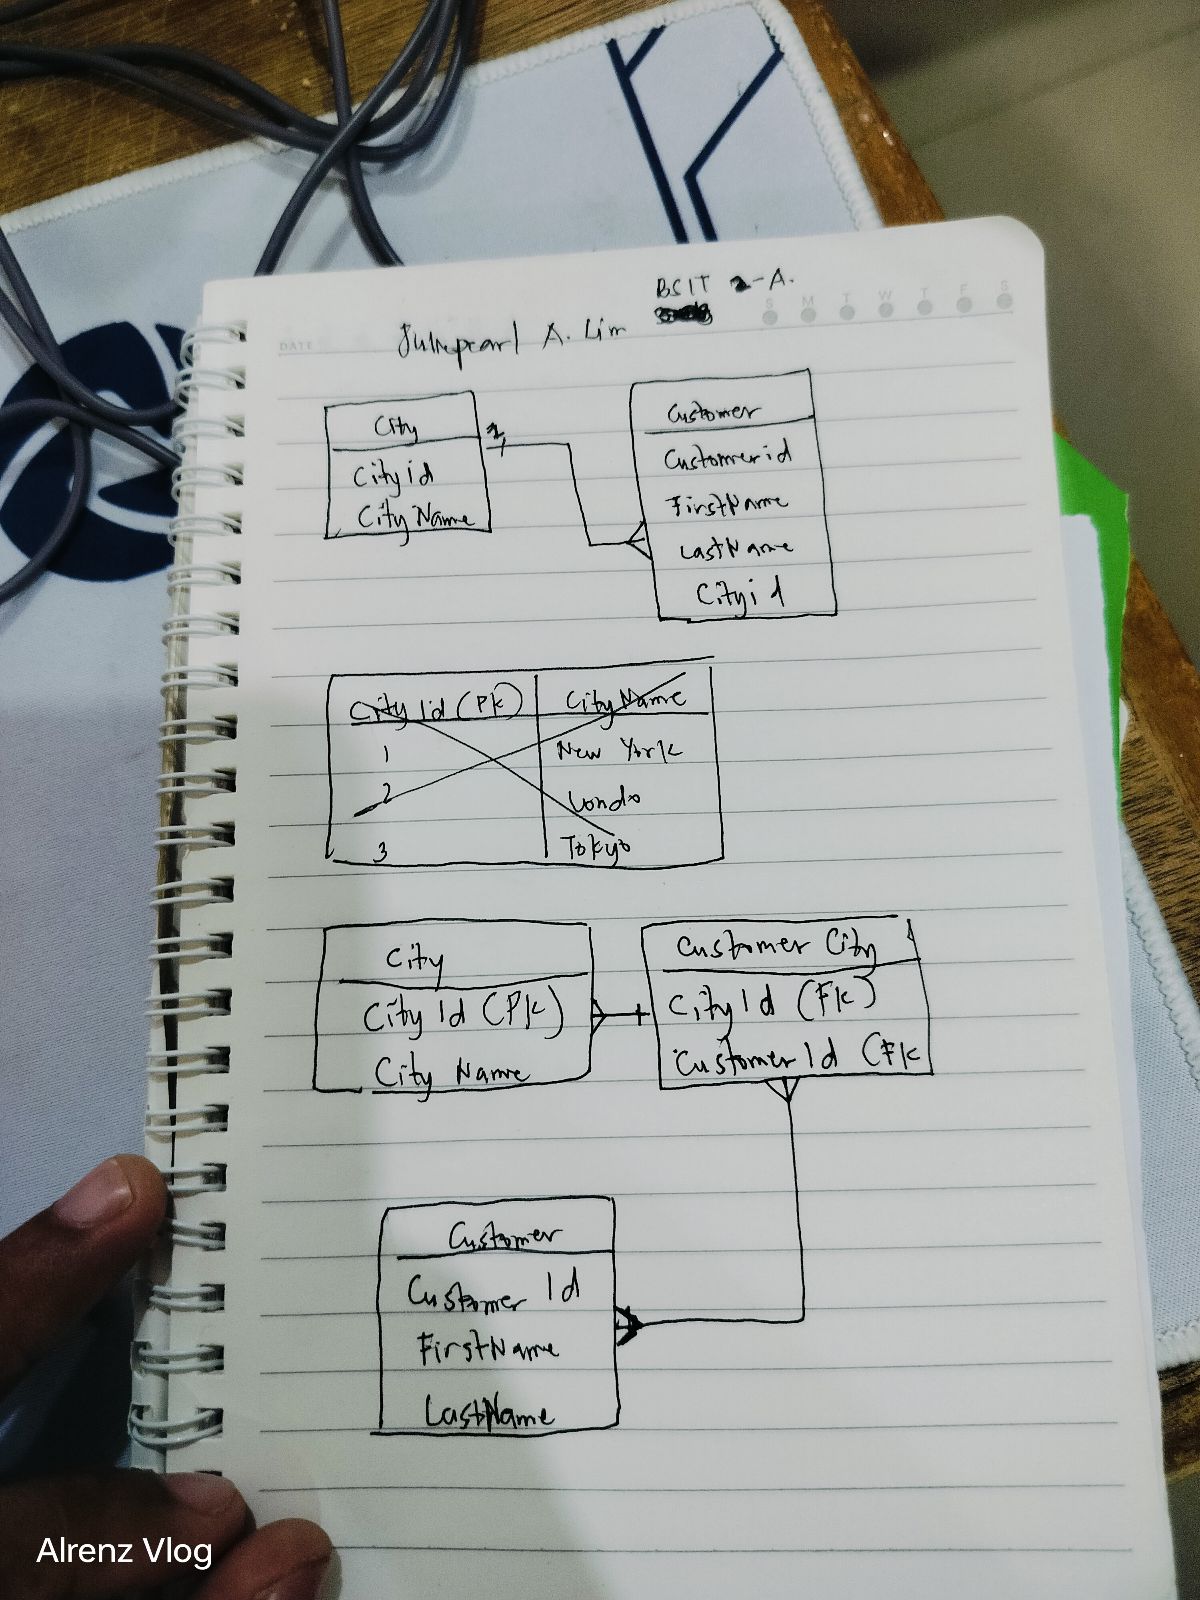 BSIT 2-A.
DATE
S M T W T F S
A. Lim
City
Cityid
CityName
1
Customer
Customerid
FirstName
LastName
Cityid
City Id (PK) CityName
1 New York
2 Londo
3 Tokyo
City
City Id (PK)
City Name
Customer City
City Id (FK)
Customer Id (FK
Customer
Customer Id
FirstName
LastName
Alrenz Vlog